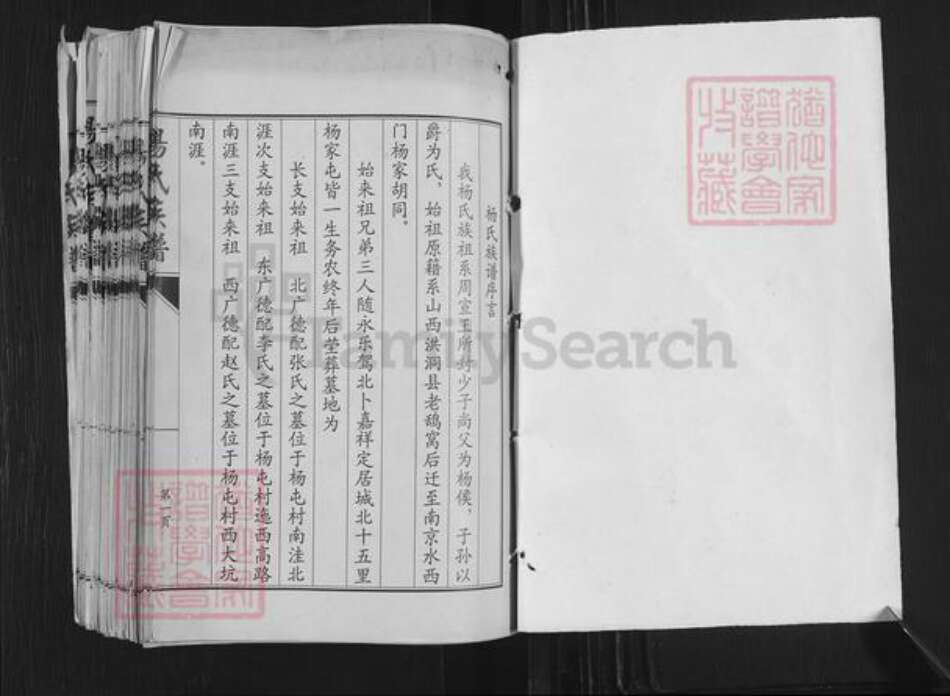 杨氏族谱序言
我杨氏族祖系周宣王所封少子尚父为杨侯，于孙以
爵为氏，始祖原籍系山西洪洞县老鸹窝后迁至南京水西
门杨家胡同。
始来祖兄弟三人随永乐驾北卜嘉祥定居城北十五里
杨家屯皆一生务农终年后茔葬墓地为
长支始来祖 北广德配张氏之墓位于杨屯村南洼北
涯次支始来祖 东广德配李氏之墓位于杨屯村迤西高路
南涯三支始来祖 西广德配赵氏之墓位于杨屯村西大坑
南涯。
第一页
杨氏族谱
FamilySearch
譜學會
收藏